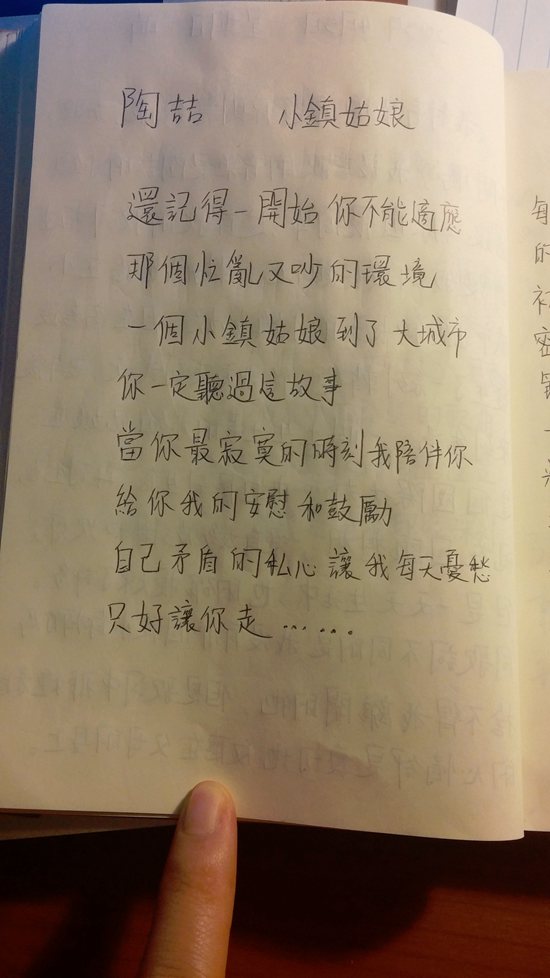 陶喆 小鎮姑娘
還記得一開始 你不能適應
那個忙亂又吵的環境
一個小鎮姑娘到了大城市
你一定聽過這故事
當你最寂寞的時刻我陪伴你
給你我的安慰和鼓勵
自己矛盾的私心讓我每天憂愁
只好讓你走……
每
的